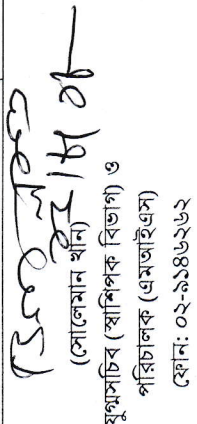 (সোলেমান খান)
যুগ্মসচিব (স্বাশিপক বিভাগ) ও
পরিচালক (এমআইএস)
ফোন: ০২-৯১৪৬২৬২